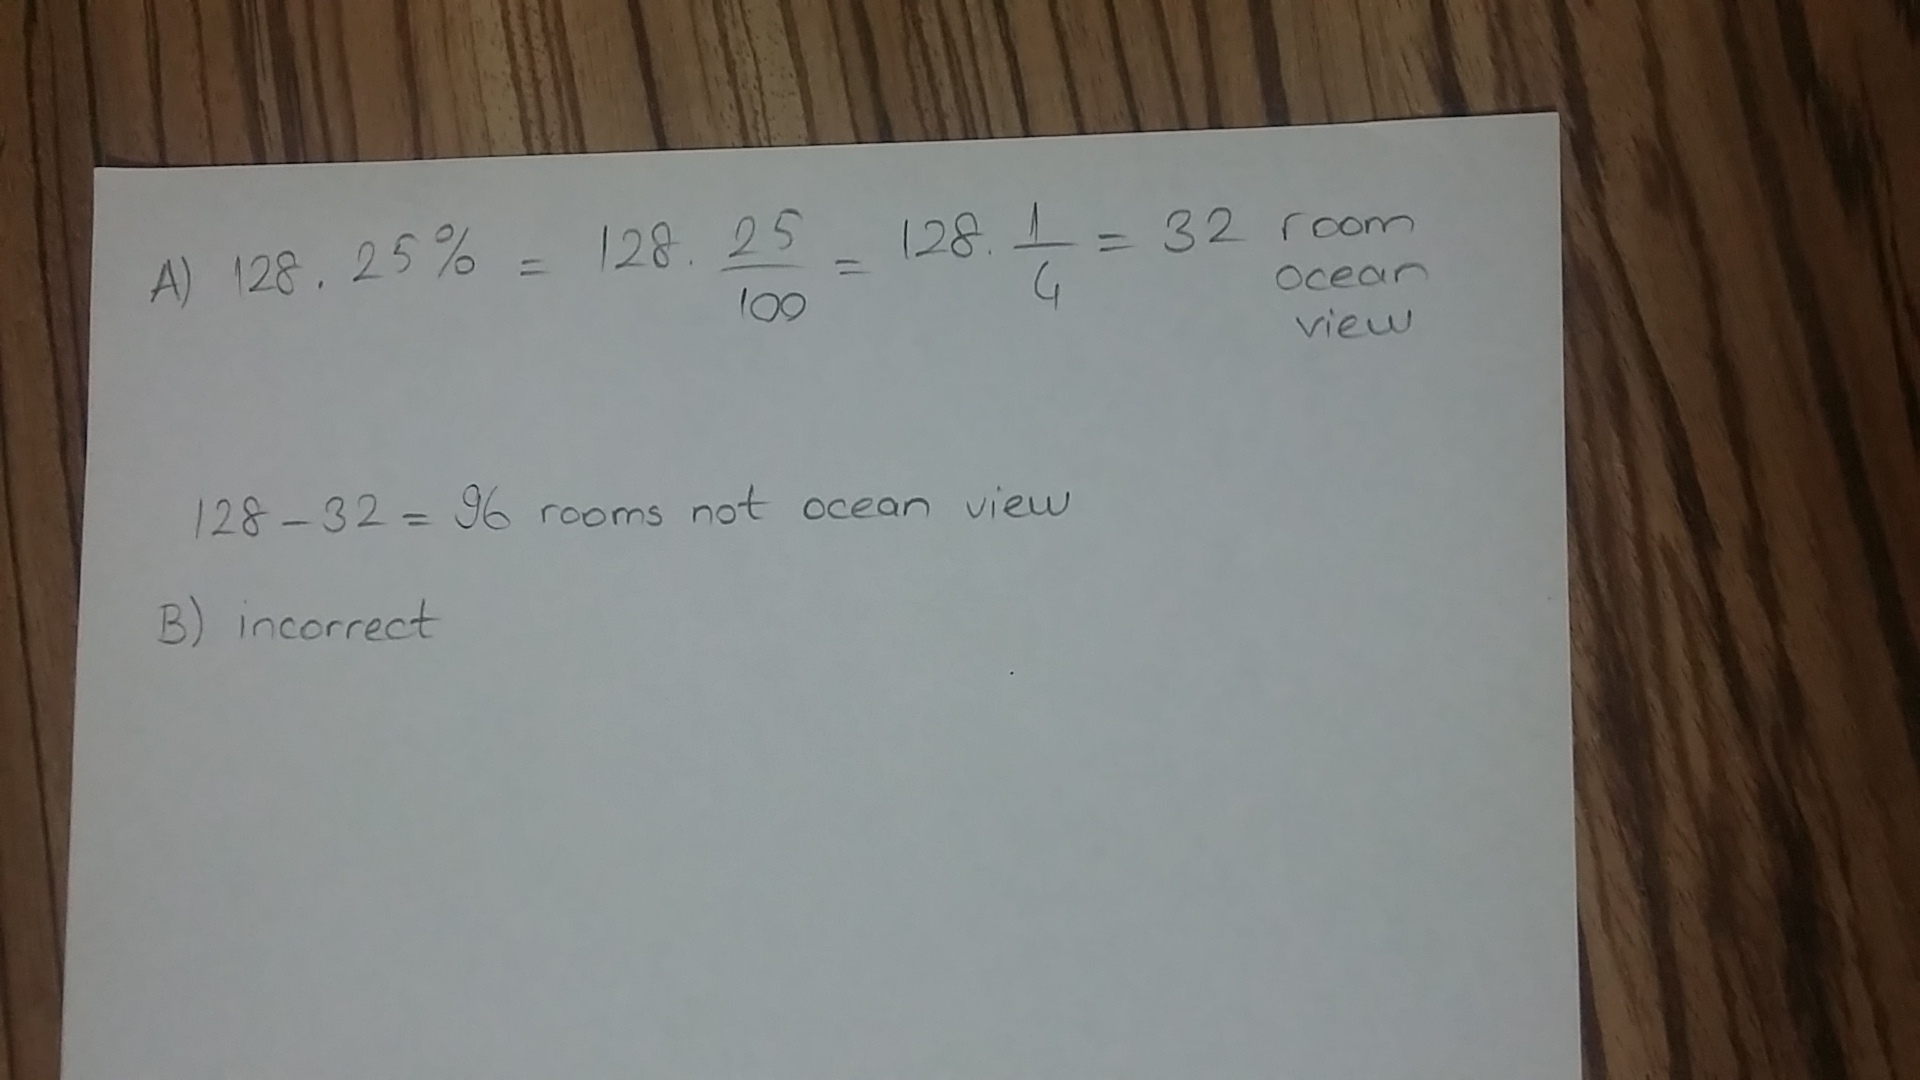 A) 128 . 25% = 128 . 25/100 = 128 . 1/4 = 32 room
ocean
view
128 - 32 = 96 rooms not ocean view
B) incorrect